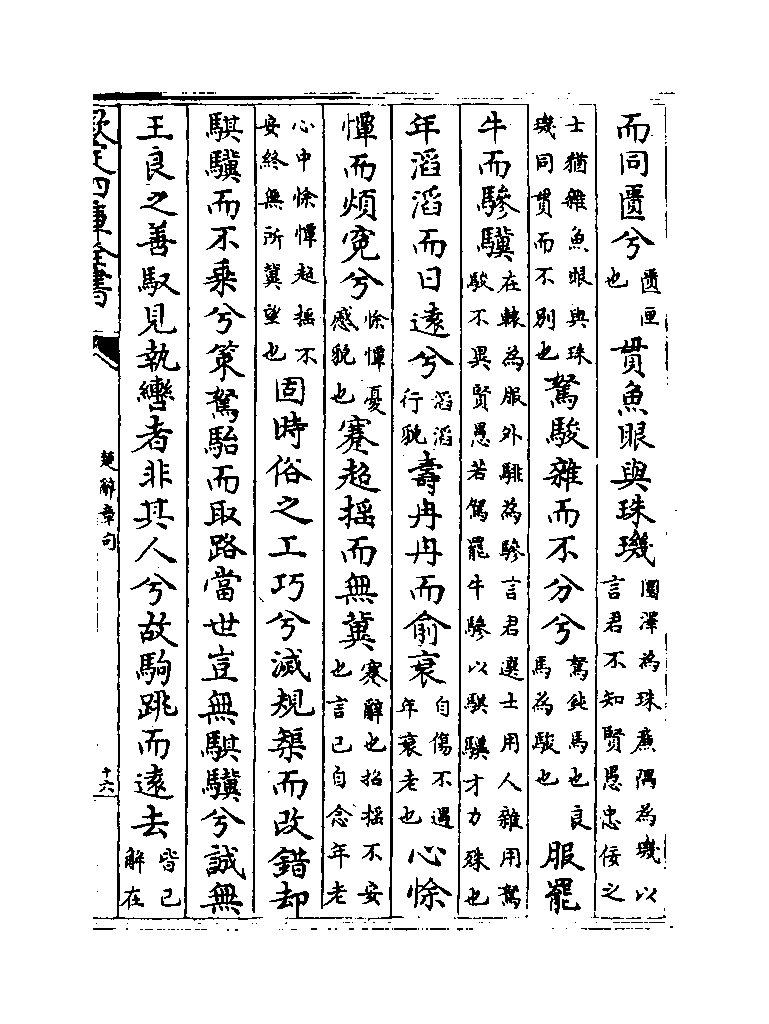 而同匱兮匱匣也貫魚眼與珠璣圜澤為珠廉隅為璣以言君不知賢愚忠佞之
士猶雜魚眼與珠璣同貫而不別也駑駿雜而不分兮駑鈍馬也良馬為駿也服罷
牛而驂驥在轅為服外騑為驂言君選士用人雜用駑駿不異賢愚若駕罷牛驂以騏驥才力殊也
年滔滔而日遠兮滔滔行貌壽冉冉而俞衰自傷不遇年衰老也心悇
憛而煩寃兮悇憛憂感貌也蹇超揺而無冀蹇辭也招揺不安也言己自念年老
心中悇憛超揺不安終無所冀望也固時俗之工巧兮滅規榘而改錯却
騏驥而不乗兮策駑駘而取路當世豈無騏驥兮誠無
王良之善馭見執轡者非其人兮故駒跳而遠去皆已解在
欽定四庫全書
楚辭章句
十六